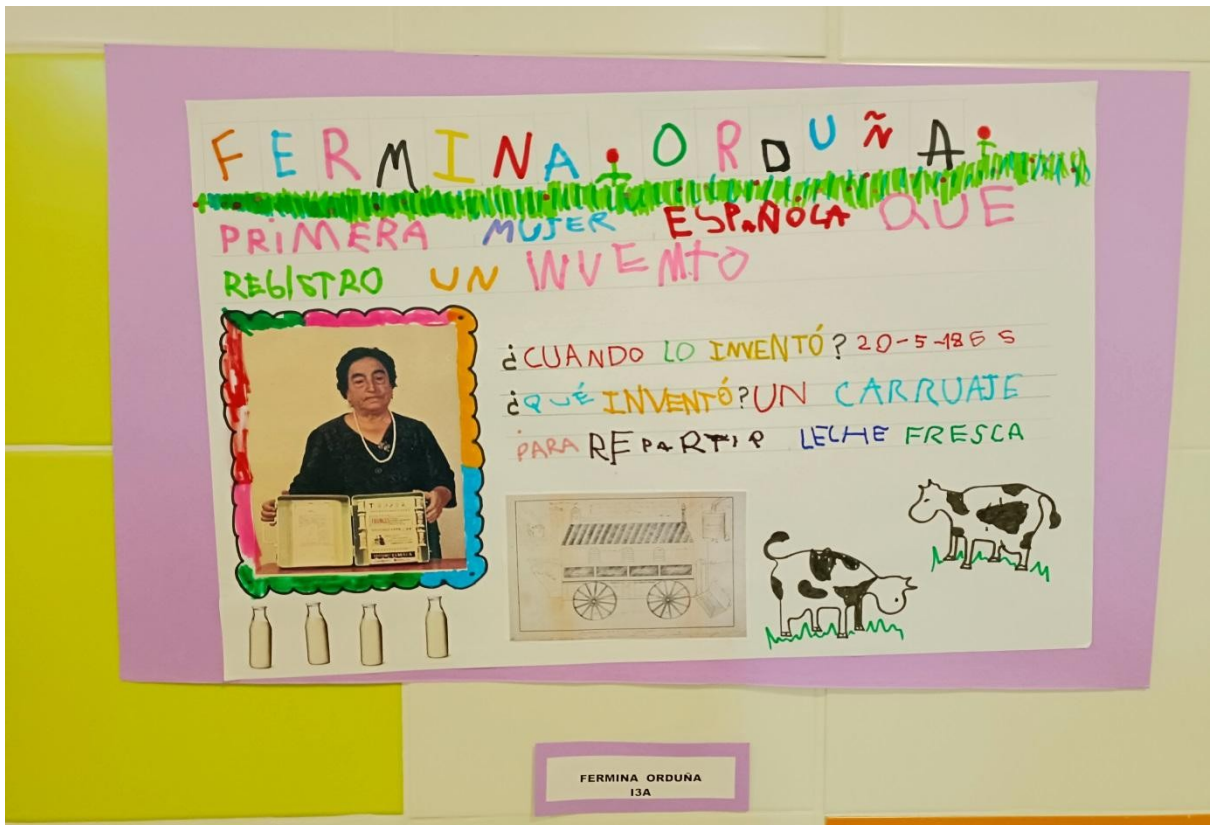 FERMINA ORDUÑA
PRIMERA MUJER ESPAÑOLA QUE
REGISTRO UN INVENTO
¿CUANDO LO INVENTÓ? 20-5-1865
¿QUÉ INVENTÓ? UN CARRUAJE
PARA REPARTIR LECHE FRESCA
FERMINA ORDUÑA
I3A